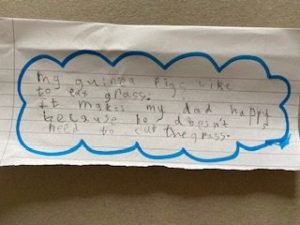 my guinea pigs like
to eat grass.
It makes my dad happy
because he doesn't
need to cut the grass.